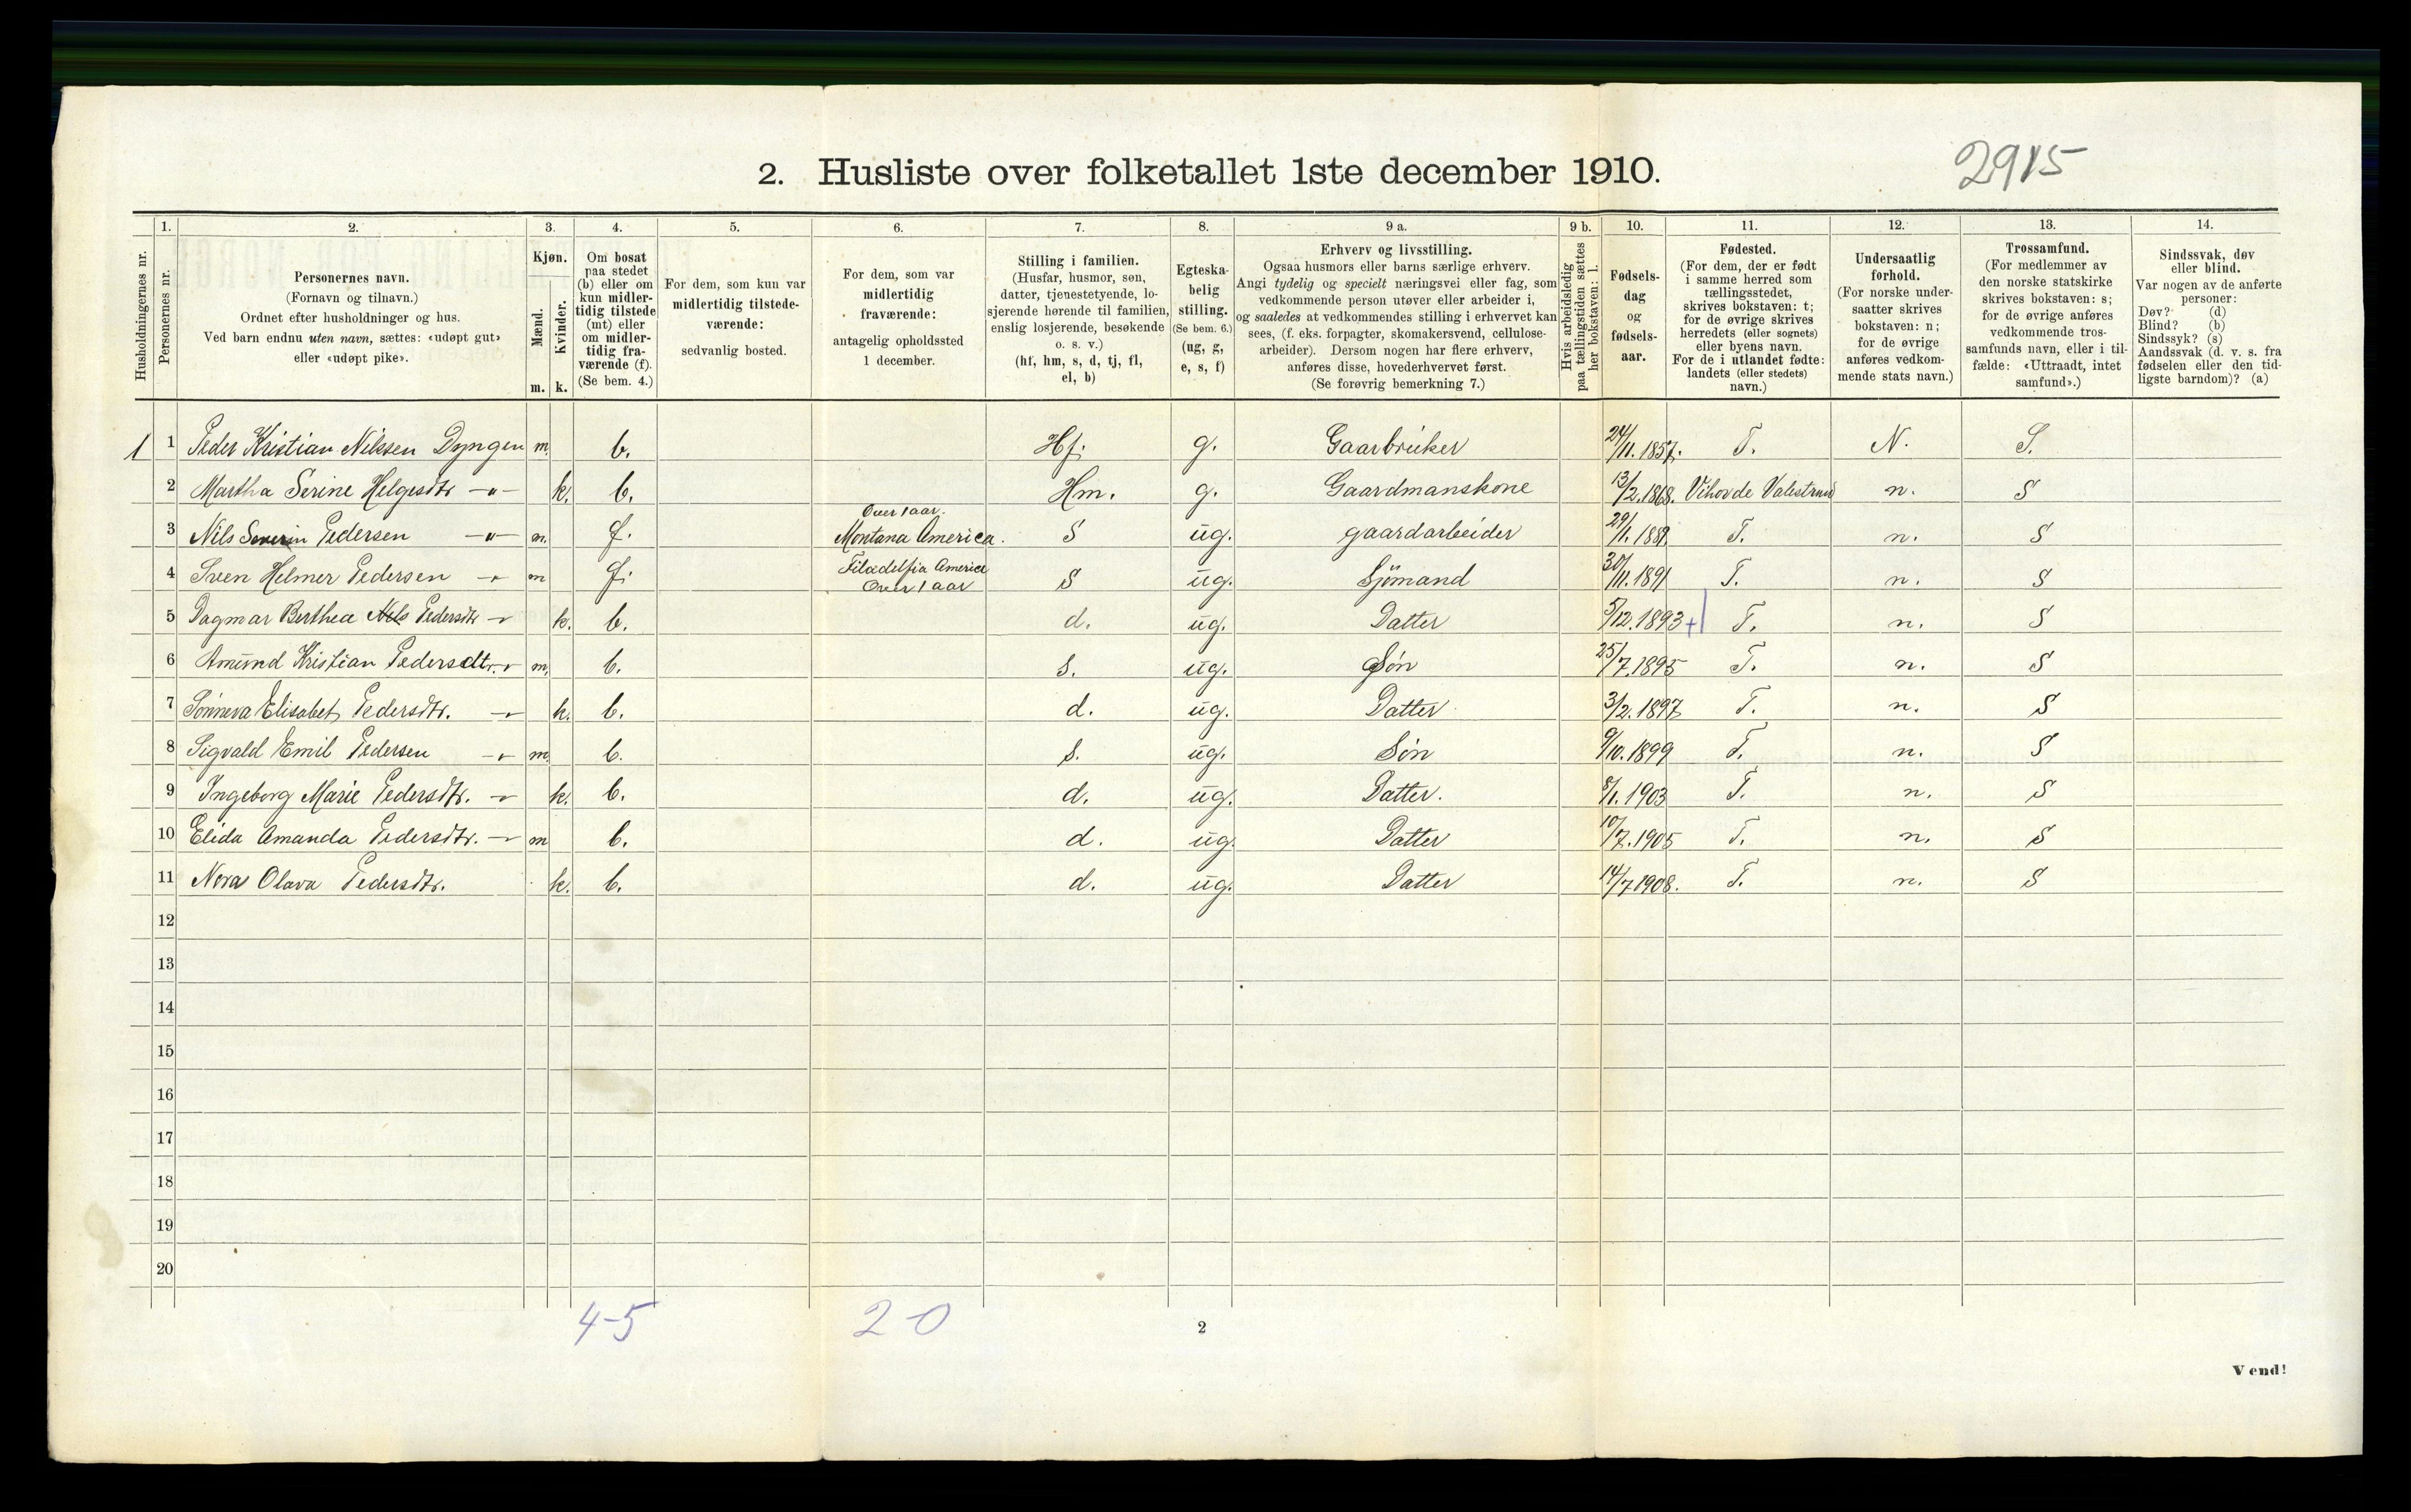 2. Husliste over folketallet 1ste december 1910.
2915
Husholdningernes nr.
1.
Personernes nr.
2.
Personernes navn.
(Fornavn og tilnavn.)
Ordnet efter husholdninger og hus.
Ved barn endnu uten navn, sættes: «udøpt gut»
eller «udøpt pike».
3.
Kjøn.
Mænd.
Kvinder.
m. k.
4.
Om bosat
paa stedet
(b) eller om
kun midler-
tidig tilstede
(mt) eller
om midler-
tidig fra-
værende (f).
(Se bem. 4.)
5.
For dem, som kun var
midlertidig tilstede-
værende:
sedvanlig bosted.
6.
For dem, som var
midlertidig
fraværende:
antagelig opholdssted
1 december.
7.
Stilling i familien.
(Husfar, husmor, søn,
datter, tjenestetyende, lo-
sjerende hørende til familien,
enslig losjerende, besøkende
o. s. v.)
(hf, hm, s, d, tj, fl,
el, b)
8.
Egteska-
belig
stilling.
(Se bem. 6.)
(ug, g,
e, s, f)
9 a.
Erhverv og livsstilling.
Ogsaa husmors eller barns særlige erhverv.
Angi tydelig og specielt næringsvei eller fag, som
vedkommende person utøver eller arbeider i,
og saaledes at vedkommendes stilling i erhvervet kan
sees, (f. eks. forpagter, skomakersvend, cellulose-
arbeider). Dersom nogen har flere erhverv,
anføres disse, hovederhvervet først.
(Se forøvrig bemerkning 7.)
9 b.
Hvis arbeidsledig
paa tællingstiden sættes
her bokstaven: l.
10.
Fødsels-
dag
og
fødsels-
aar.
11.
Fødested.
(For dem, der er født
i samme herred som
tællingsstedet,
skrives bokstaven: t;
for de øvrige skrives
herredets (eller sognets)
eller byens navn.
For de i utlandet fødte:
landets (eller stedets)
navn.)
12.
Undersaatlig
forhold.
(For norske under-
saatter skrives
bokstaven: n;
for de øvrige
anføres vedkom-
mende stats navn.)
13.
Trossamfund.
(For medlemmer av
den norske statskirke
skrives bokstaven: s;
for de øvrige anføres
vedkommende tros-
samfunds navn, eller i til-
fælde: «Uttraadt, intet
samfund».)
14.
Sindssvak, døv
eller blind.
Var nogen av de anførte
personer:
Døv? (d)
Blind? (b)
Sindssyk? (s)
Aandssvak (d. v. s. fra
fødselen eller den tid-
ligste barndom)? (a)
1 1 Peder Kristian Nilssen Dyngen m. b. Hf. g. Gaarbrüker 24/11.1857. T. N. S.
2 Martha Serine Helgesdtr -"- k. b. Hm. g. Gaardmanskone 13/2.1868. Valestrand n. S
Over 1 aar.
3 Nils Severin Pedersen -"- m. f. Montana America. S ug. gaardarbeider 29/1. T. n. S
Filadelfia America
4 Sven Helmer Pedersen -"- m f. Over 1 aar S ug. Sjömand 30/11.1891 T. n. S
5 Dagmar Berthea Pedersdtr -"- k. b. d. ug. Datter 5/12.1893 + T. n. S
6 Amund Kristian Pedersdtr. -"- m. b. s. ug. Søn 25/7.1895 T. n. S
7 Sönneva Elisabet Pedersdtr. -"- k. b. d. ug. Datter 3/2.1897 T. n. S
8 Sigvald Emil Pedersen -"- m. b. s. ug. Søn 9/10.1899 T. n. S
9 Ingeborg Marie Pedersdtr. -"- k. b. d. ug. Datter. 8/1.1903 T. n. S
10 Elida Amanda Pedersdtr. -"- m b. d. ug. Datter 10/7.1905 T. n. S
11 Nora Olava Pedersdtr. k. b. d. ug. Datter 14/7 1908. T. n. S
12
13
14
15
16
17
18
19
20
4-5
2-0
2
Vend!